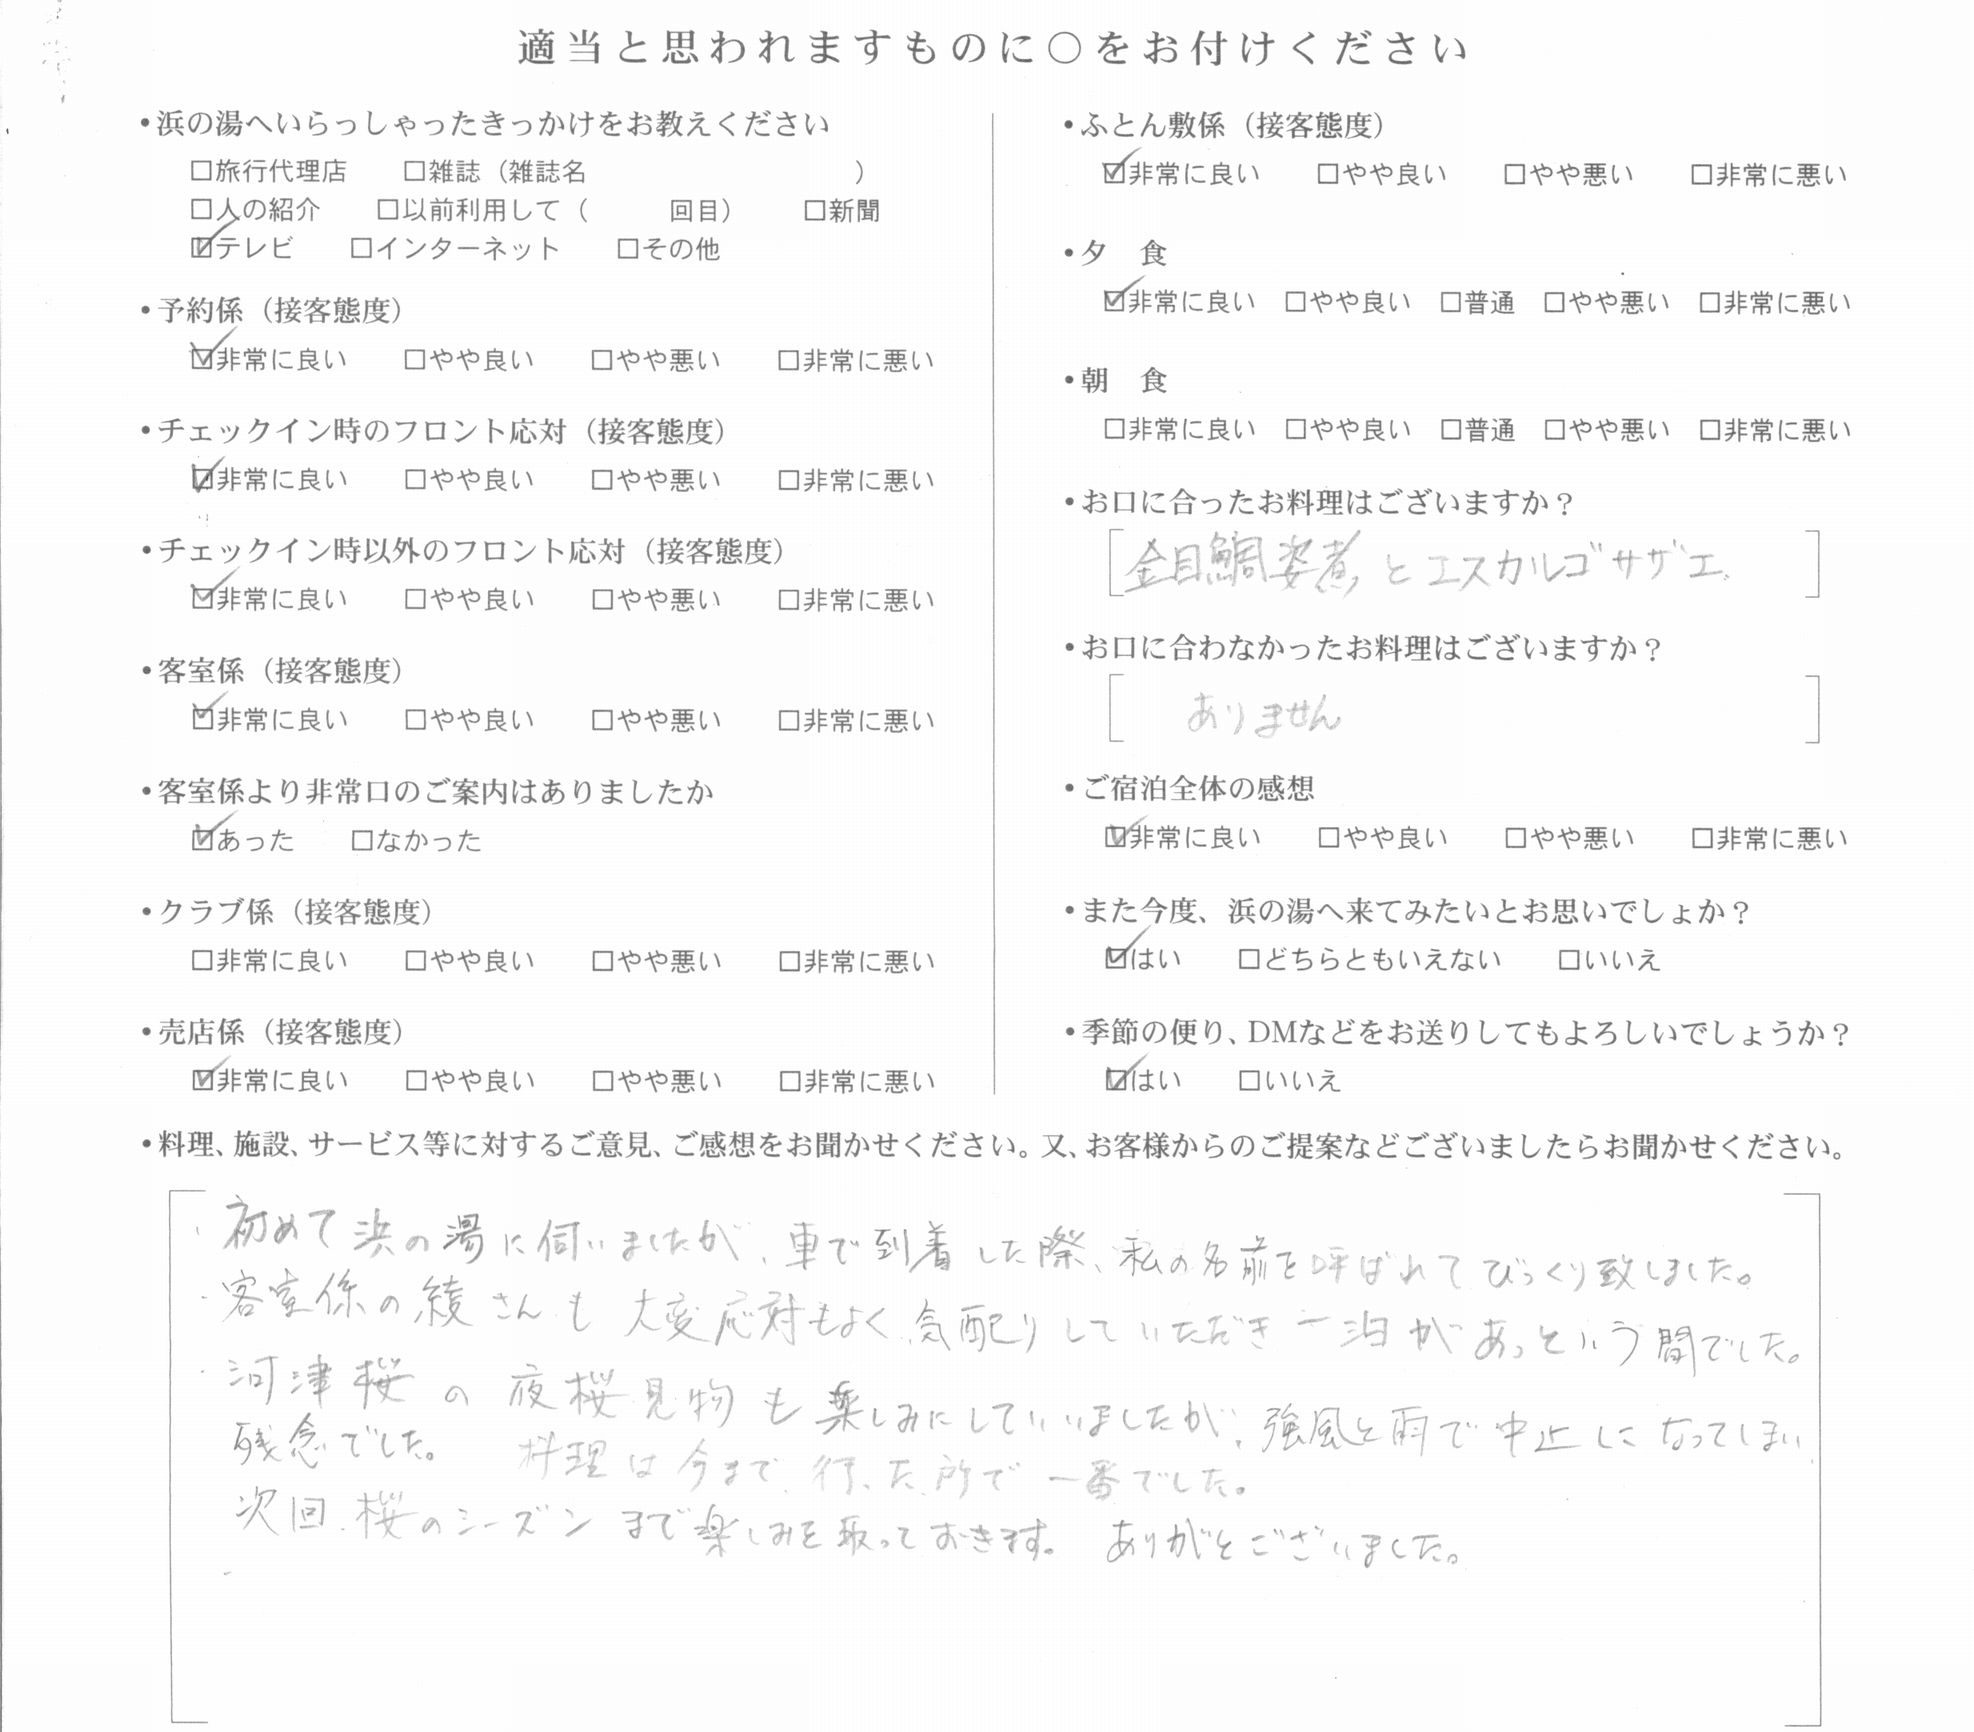 適当と思われますものに○をお付けください
・浜の湯へいらっしゃったきっかけをお教えください
□旅行代理店 □雑誌（雑誌名 ）
□人の紹介 □以前利用して（ 回目） □新聞
☑テレビ □インターネット □その他
・予約係（接客態度）
☑非常に良い □やや良い □やや悪い □非常に悪い
・チェックイン時のフロント応対（接客態度）
☑非常に良い □やや良い □やや悪い □非常に悪い
・チェックイン時以外のフロント応対（接客態度）
☑非常に良い □やや良い □やや悪い □非常に悪い
・客室係（接客態度）
☑非常に良い □やや良い □やや悪い □非常に悪い
・客室係より非常口のご案内はありましたか
☑あった □なかった
・クラブ係（接客態度）
□非常に良い □やや良い □やや悪い □非常に悪い
・売店係（接客態度）
☑非常に良い □やや良い □やや悪い □非常に悪い
・ふとん敷係（接客態度）
☑非常に良い □やや良い □やや悪い □非常に悪い
・夕 食
☑非常に良い □やや良い □普通 □やや悪い □非常に悪い
・朝 食
□非常に良い □やや良い □普通 □やや悪い □非常に悪い
・お口に合ったお料理はございますか？
金目鯛姿煮とエスカルゴサザエ
・お口に合わなかったお料理はございますか？
ありません
・ご宿泊全体の感想
☑非常に良い □やや良い □やや悪い □非常に悪い
・また今度、浜の湯へ来てみたいとお思いでしょか？
☑はい □どちらともいえない □いいえ
・季節の便り、DMなどをお送りしてもよろしいでしょうか？
☑はい □いいえ
・料理、施設、サービス等に対するご意見、ご感想をお聞かせください。又、お客様からのご提案などございましたらお聞かせください。
・初めて浜の湯に伺いましたが、車で到着した際、私の名前を呼ばれてびっくり致しました。
・客室係の綾さんも大変応対もよく気配りしていただき一泊があっという間でした。
・河津桜の夜桜見物も楽しみにしていいましたが、強風と雨で中止になってしまい
残念でした。 料理は今まで行った所で一番でした。
次回桜のシーズンまで楽しみを取っておきます。 ありがとございました。